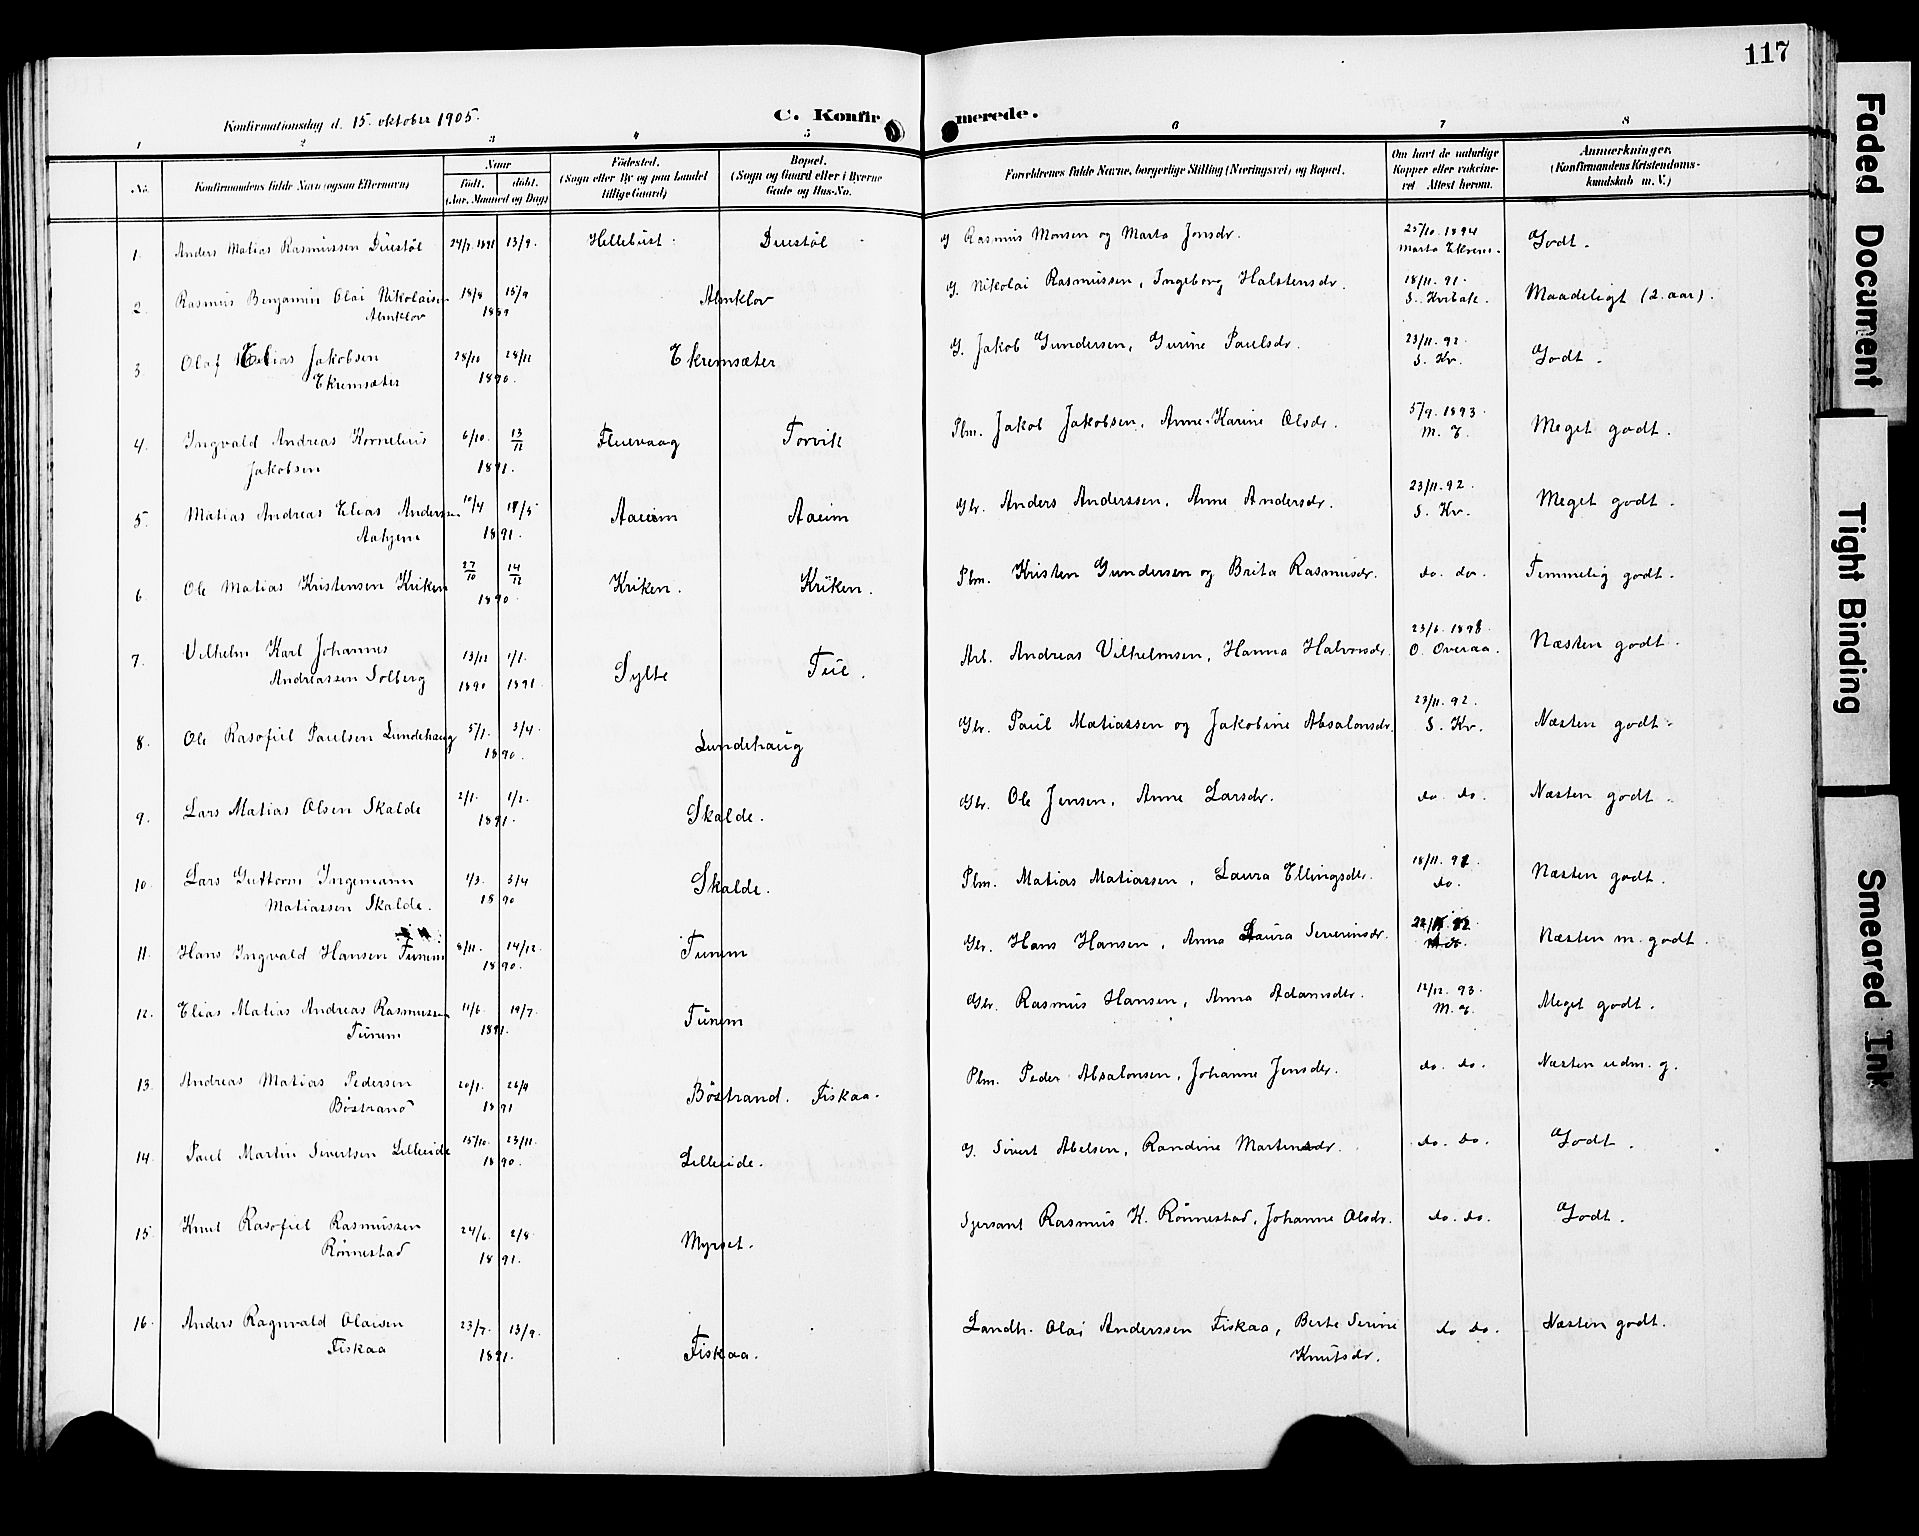 117
Konfirmationsdag d. 15. oktober 1905.
C. Konfirmerede.
1 2 3 4 5 6 7 8
No. Konfirmandens fulde Navn (ogsaa Efternavn) Naar født. døbt. (Aar, Maaned og Dag) Fødested. (Sogn eller By og paa Landet tillige Gaard) Bopæl. (Sogn og Gaard eller i Byerne Gade og Hus-No. Forældrenes fulde Navne, borgerlige Stilling (Næringsvei) og Bopæl. Om havt de naturlige Kopper eller vakcineret Attest herom. Anmærkninger. (Konfirmandens Kristendomskundskab m. V.)
1. Anders Matias Rasmussen Duestøl 24/7 1891 13/9. Hellebust. Duestøl G Rasmus Monsen og Marta Jonsdr. 25/10. 1894 Marta Ekrem. Godt.
2. Rasmus Benjamin Olai Nikolaisen Almklov 18/8 15/9 1889 Almklov G. Nikolai Rasmussen, Ingeborg Halstensdr. 18/11. 91. Maadeligt (2. aar).
3. Olaf Elias Jakobsen Ekremsæter 28/10 28/11 1890. Ekremsæter G. Jakob Gundersen, Gurine Paulsdr. 23/11. 92. S. Kv. Godt.
4. Ingvald Andreas Kornelius Jakobsen 6/10. 13/12 1891. Fluevaag Torvik Plm. Jakob Jakobsen, Anne-Karine Olsdr. 5/9. 1893. M. E. Meget godt.
5. Matias Andreas Elias Anderssen Aahjem 10/4 18/5 1891. Aaeim Aaeim Gbr. Anders Anderssen, Anne Andersdr. 23/11. 92. S. Kv. Meget godt.
6. Ole Matias Kristensen Kriken 27/10 14/12 1890. Kriken. Kriken. Plm. Kristen Gundersen og Brita Rasmusdr. do. do. Temmelig godt.
7. Vilhelm Karl Johannes Andreassen Solberg 13/12 1890 1/1. 1891. Sylte Tue. Arb. Andreas Vilhelmsen, Hanna Halvorsdr. 23/6. 1898. O. Overaa. Næsten godt.
8. Ole Rasofiel Paulsen Lundehaug 5/1. 3/4. 1890. Lundehaug Gbr. Paul Matiassen og Jakobine Absalonsdr. 23/11. 92. S. Kv. Næsten godt.
9. Lars Matias Olsen Skalde 2/1. 1/2. 1891. Skalde. Gbr. Ole Jensen, Anne Larsdr. do. do. Næsten godt.
10. Lars Guttorm Ingemann Matiassen Skalde. 1/3. 3/4 1890 Skalde. Plm. Matias Matiassen, Laura Ellingsdtr. 18/11. 92. do. Næsten godt.
11. Hans Ingvald Hansen Tunem 8/11. 14/12. 1890. Tunem Gbr. Hans Hansen, Anna Laura Severinsdr. Næsten m. godt.
12. Elias Matias Andreas Rasmussen Tunem 11/6. 19/7. 1891. Tunem Gbr. Rasmus Hansen, Anna Adamsdtr. 12/12. 93. M. E. Meget godt.
13. Andreas Matias Pedersen Bøstrand 20/1. 26/9 1891 Bøstrand. Fiskaa. Plm. Peder Absalonsen, Johanne Jensdtr. do. do. Næsten udm. g.
14. Paul Martin Sivertsen Lilleeide 15/10. 23/11. 1890. Lilleeide. G. Sivert Abelsen, Randine Martensdr. do. do. Godt.
15. Knut Rasofiel Rasmussen Rønnestad 24/6. 2/8. 1891. Myrset. Sjersant Rasmus K. Rønnestad, Johanne Olsdr. do. do. Godt.
16. Anders Ragnvald Olaisen Fiskaa 23/7. 13/9. 1891. Fiskaa. Landh. Olai Anderssen Fiskaa, Berte Serine Knutsdr. do do. Næsten godt.
Faded Document
Tight Binding
Smeared Ink